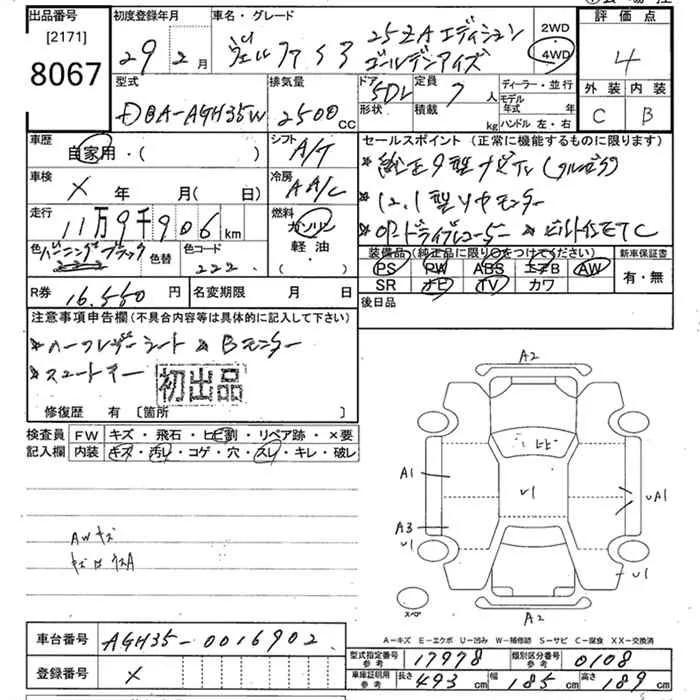 出品番号 初度登録年月 車名・グレード 評価点
[2171] 29年 2月 ヴェルファイア 25ZAエディション 2WD 4
8067 ゴールデンアイズ 4WD
型式 排気量 ドア 定員 ディーラー・並行 外装 内装
DBA-AGH35W 2500cc 5DL 7人 モデル年式 年 C B
形状 積載 kg ハンドル 左・右
車歴 自家用・( ) シフト A/T セールスポイント (正常に機能するものに限ります)
車検 × 年 月( 日) 冷房 AAC
走行 11万9千906km 燃料 ガソリン 軽油・( )
* 12.1型リヤモニター
* OPドライブレコーダー * ビルトインETC
色 バーニングブラック 色替 色コード 222
装備品(純正品に限り○をつけてください) 新車保証書
PS PW ABS エアB AW 有・無
SR ナビ TV カワ
R券 16.560円 名変期限 月 日 後日品
注意事項申告欄(不具合内容等は具体的に記入して下さい)
* ハーフレザーシート * Bモニター
* スマートキー 初出品
修復歴 有 [箇所 ]
検査員 FW キズ・飛石・ヒビ割・リペア跡・×要
記入欄 内装 キズ・汚レ・コゲ・穴・スレ・キレ・破レ
A2
ヒビ
A1 U1 UA1
A3
U1 U1
AWキズ
スペア A2
A-キズ E-エクボ U-凹み W-補修跡 S-サビ C-腐食 XX-交換済
車台番号 AGH35-0016902
型式指定番号 参考 17978 類別区分番号 参考 0108
登録番号 ×
車庫証明用 参考 長さ 493cm 幅 185cm 高さ 189cm